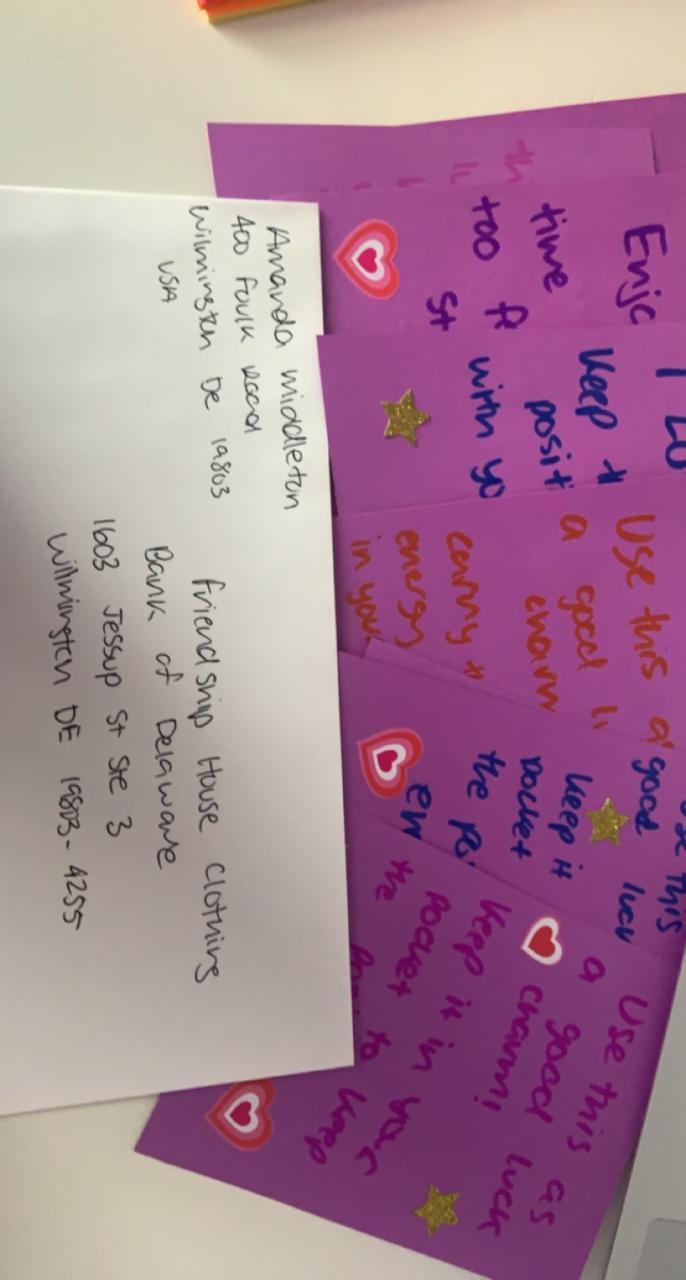 Amanda Middleton
400 Foulk Road
Wilmington DE 19803
USA
Friendship House Clothing
Bank of Delaware
1603 Jessup St Ste 3
Wilmington DE 19803-4255
th
Enjo
time
too
St
Keep
posit
with yo
Use this a
a good l
charm
carry
energy
in your
use this
good luck
keep it
pocket
the po
en
Use this as
a good luck
charm!
keep it in your
pocket to keep
the